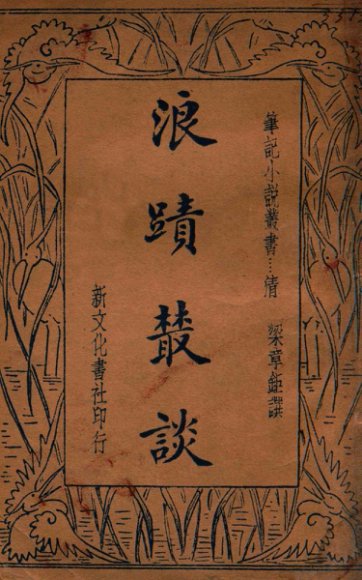 筆記小說叢書…清 梁章鉅譔
浪蹟叢談
新文化書社印行